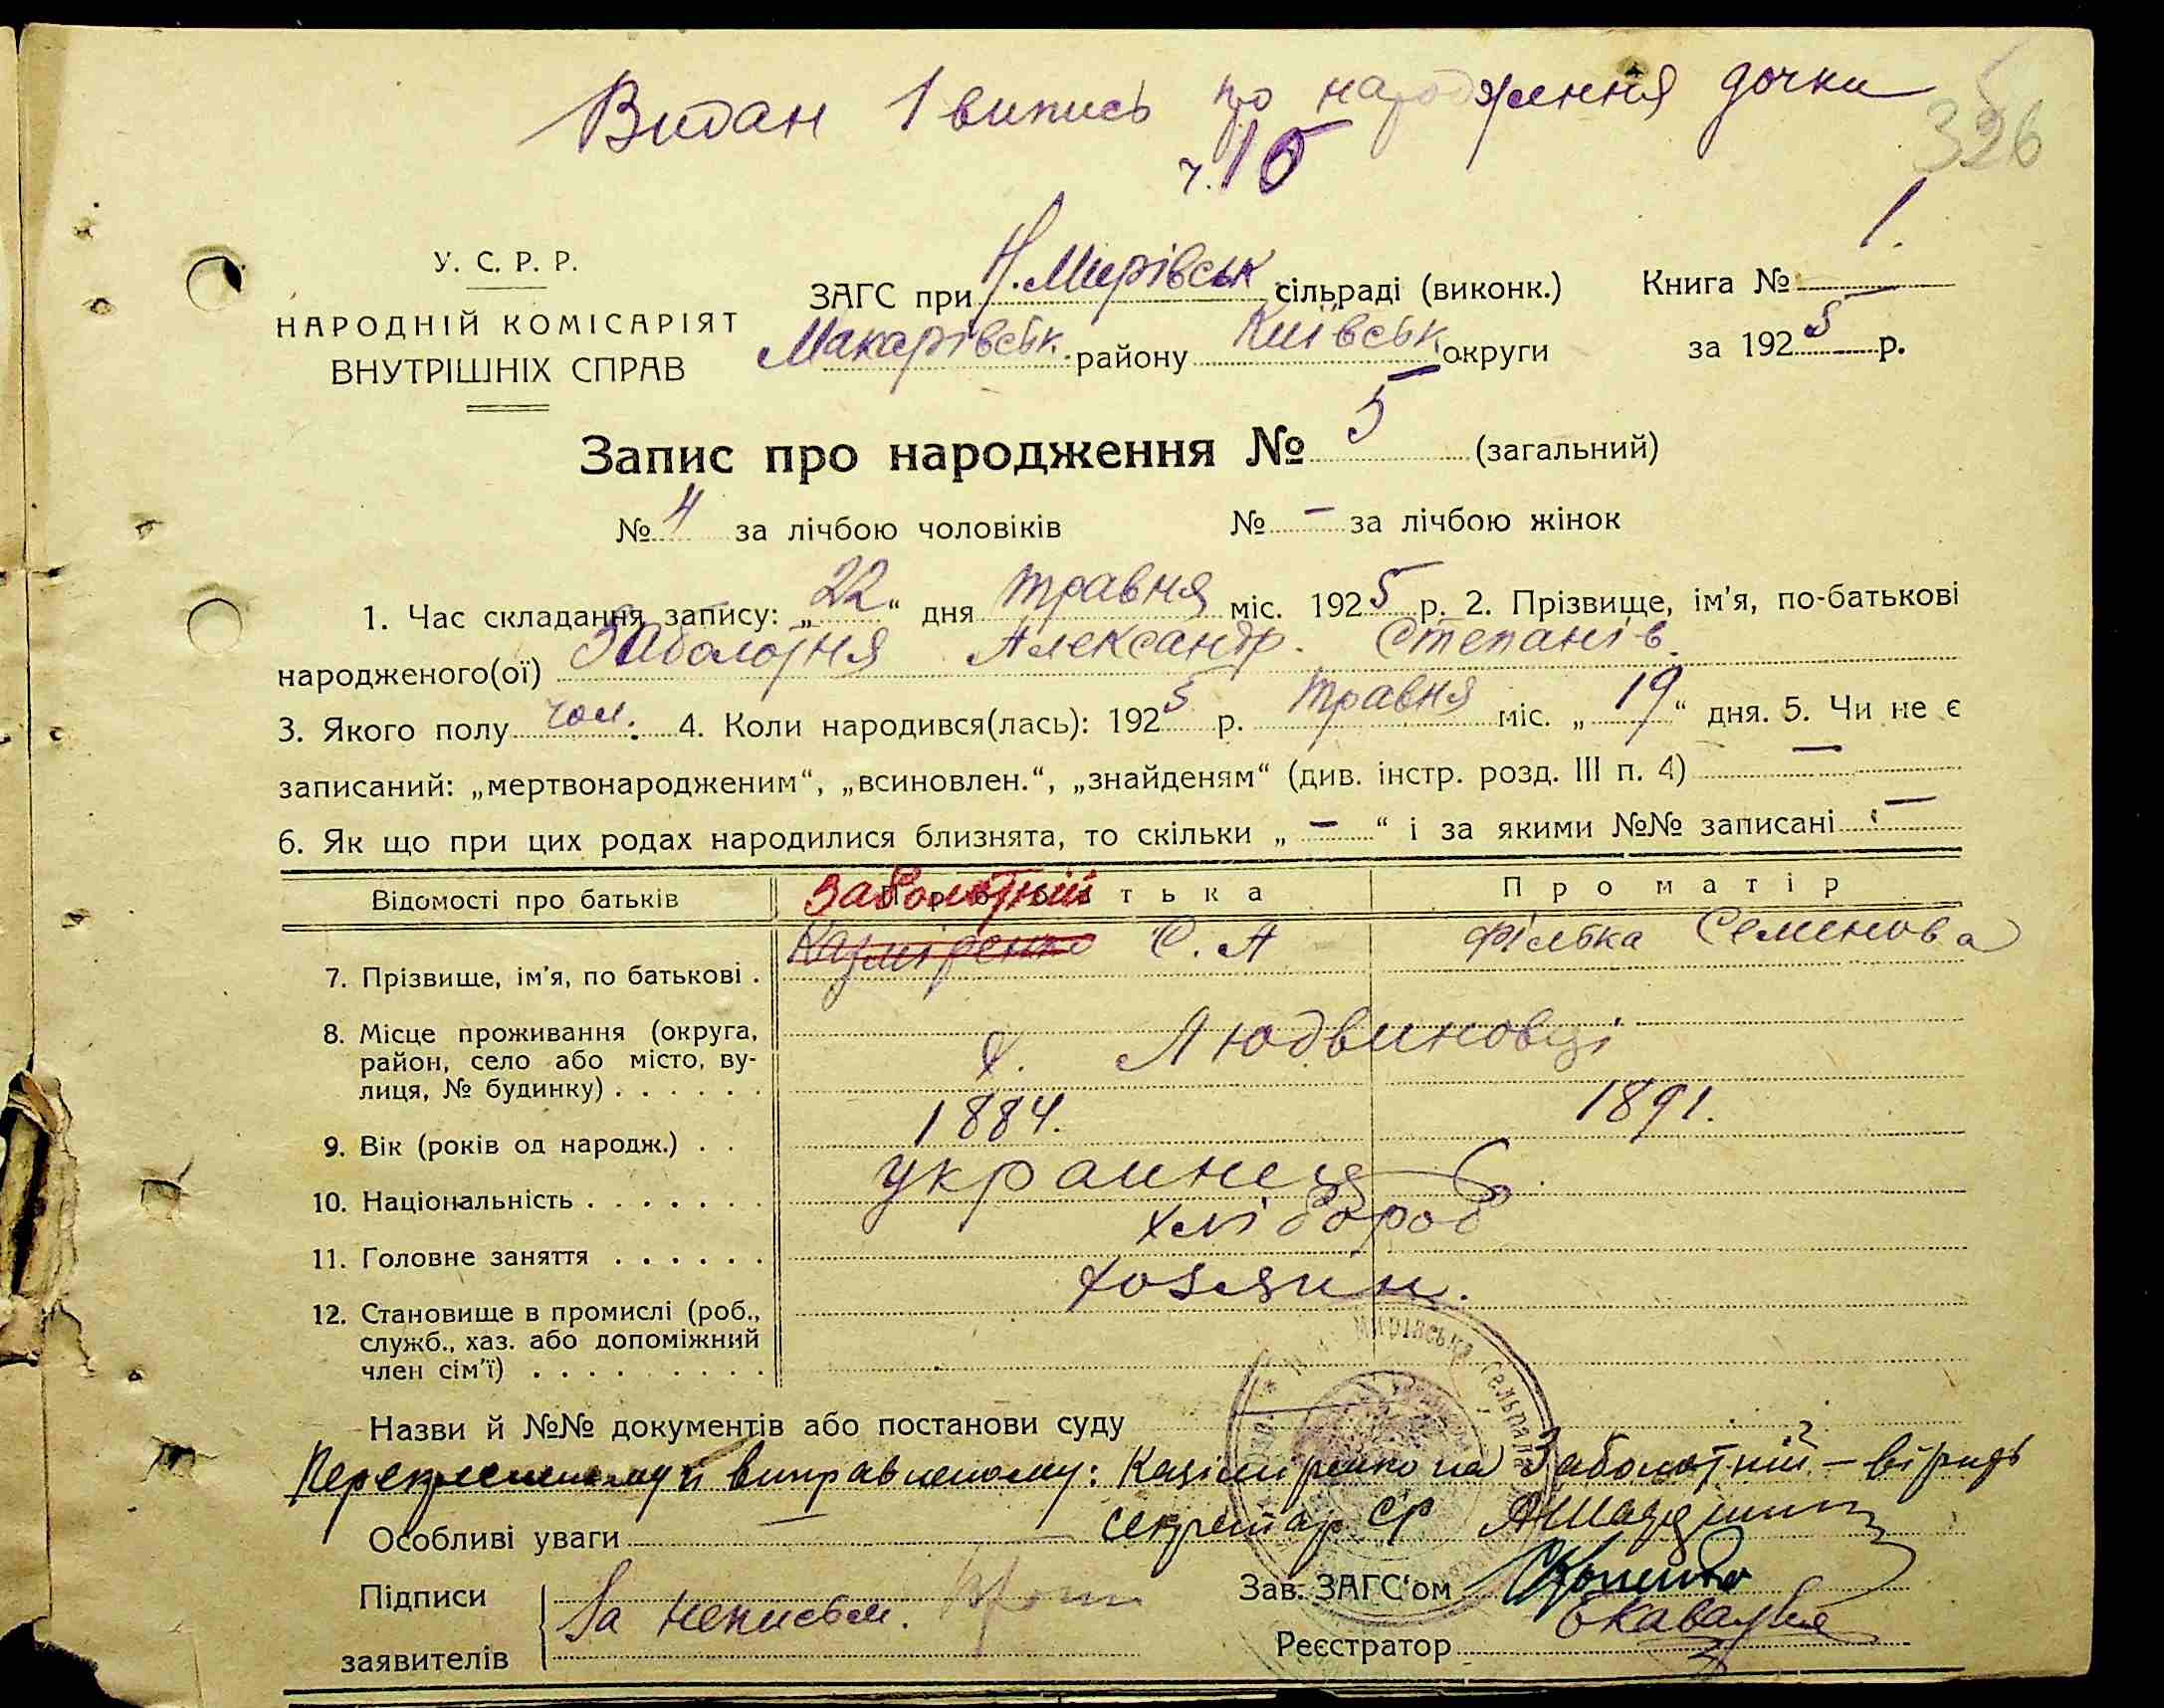 Видан 1 випись про народження дочки
ч. 15
326
У. С. Р. Р.
НАРОДНІЙ КОМІСАРІЯТ
ВНУТРІШНІХ СПРАВ
ЗАГС при Н. Мирівськ сільраді (виконк.) Книга № 1.
Макарівськ. району Київськ. округи за 1925 р.
Запис про народження № 5 (загальний)
№ 4 за лічбою чоловіків № – за лічбою жінок
1. Час складання запису: „22“ дня травня міс. 1925 р. 2. Прізвище, ім’я, по-батькові
народженого(ої) Заболотня Александр. Степанів.
3. Якого полу чол. 4. Коли народився(лась): 1925 р. травня міс. „19“ дня. 5. Чи не є
записаний: „мертвонародженим“, „всиновлен.“, „знайденям“ (див. інстр. розд. III п. 4) –
6. Як що при цих родах народилися близнята, то скільки „–“ і за якими №№ записані –
Відомості про батьків Про батька Про матір
Заболотній
7. Прізвище, ім’я, по батькові . С. А Фількa Семенова
8. Місце проживання (округа,
район, село або місто, ву-
лиця, № будинку) . . . . . . х. Людвиновці
9. Вік (років од народж.) . . 1884. 1891.
10. Національність . . . . . . . украинець
11. Головне заняття . . . . . . хлібороб
12. Становище в промислі (роб.,
служб., хаз. або допоміжний
член сім’ї) . . . . . . . . . хозяин.
Назви й №№ документів або постанови суду
виправленому: Казіміренко на Заболотній – вірить
Особливі уваги – секретар СР
Підписи
заявителів За неписьм.
Зав. ЗАГС‘ом
Реєстратор